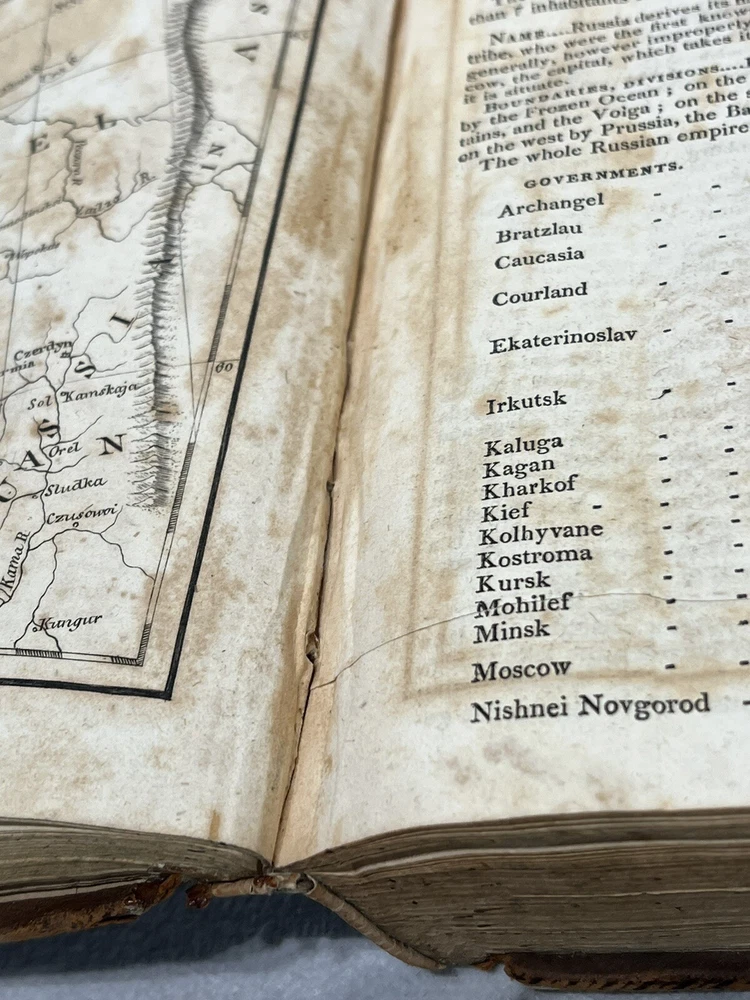 E L
R.
IN
A
S
I
Czerdyn
60
Sol Kamskaja
S
Orel
N
U A S
Sludka
Czusowoi
Kama R.
Kungur
than 7 inhabitants
NAME....Russia derives its
tribe, who were the first know
generally, however improperly
cow, the capital, which takes it
it is situate.
BOUNDARIES, DIVISIONS....
by the Frozen Ocean; on the
tains, and the Volga; on the s
on the west by Prussia, the Ba
The whole Russian empire
GOVERNMENTS.
Archangel - -
Bratzlau - -
Caucasia - -
Courland - -
Ekaterinoslav - -
Irkutsk - -
Kaluga - -
Kagan - -
Kharkof - -
Kief - - -
Kolhyvane - -
Kostroma - -
Kursk - -
Mohilef - -
Minsk - -
Moscow - -
Nishnei Novgorod -